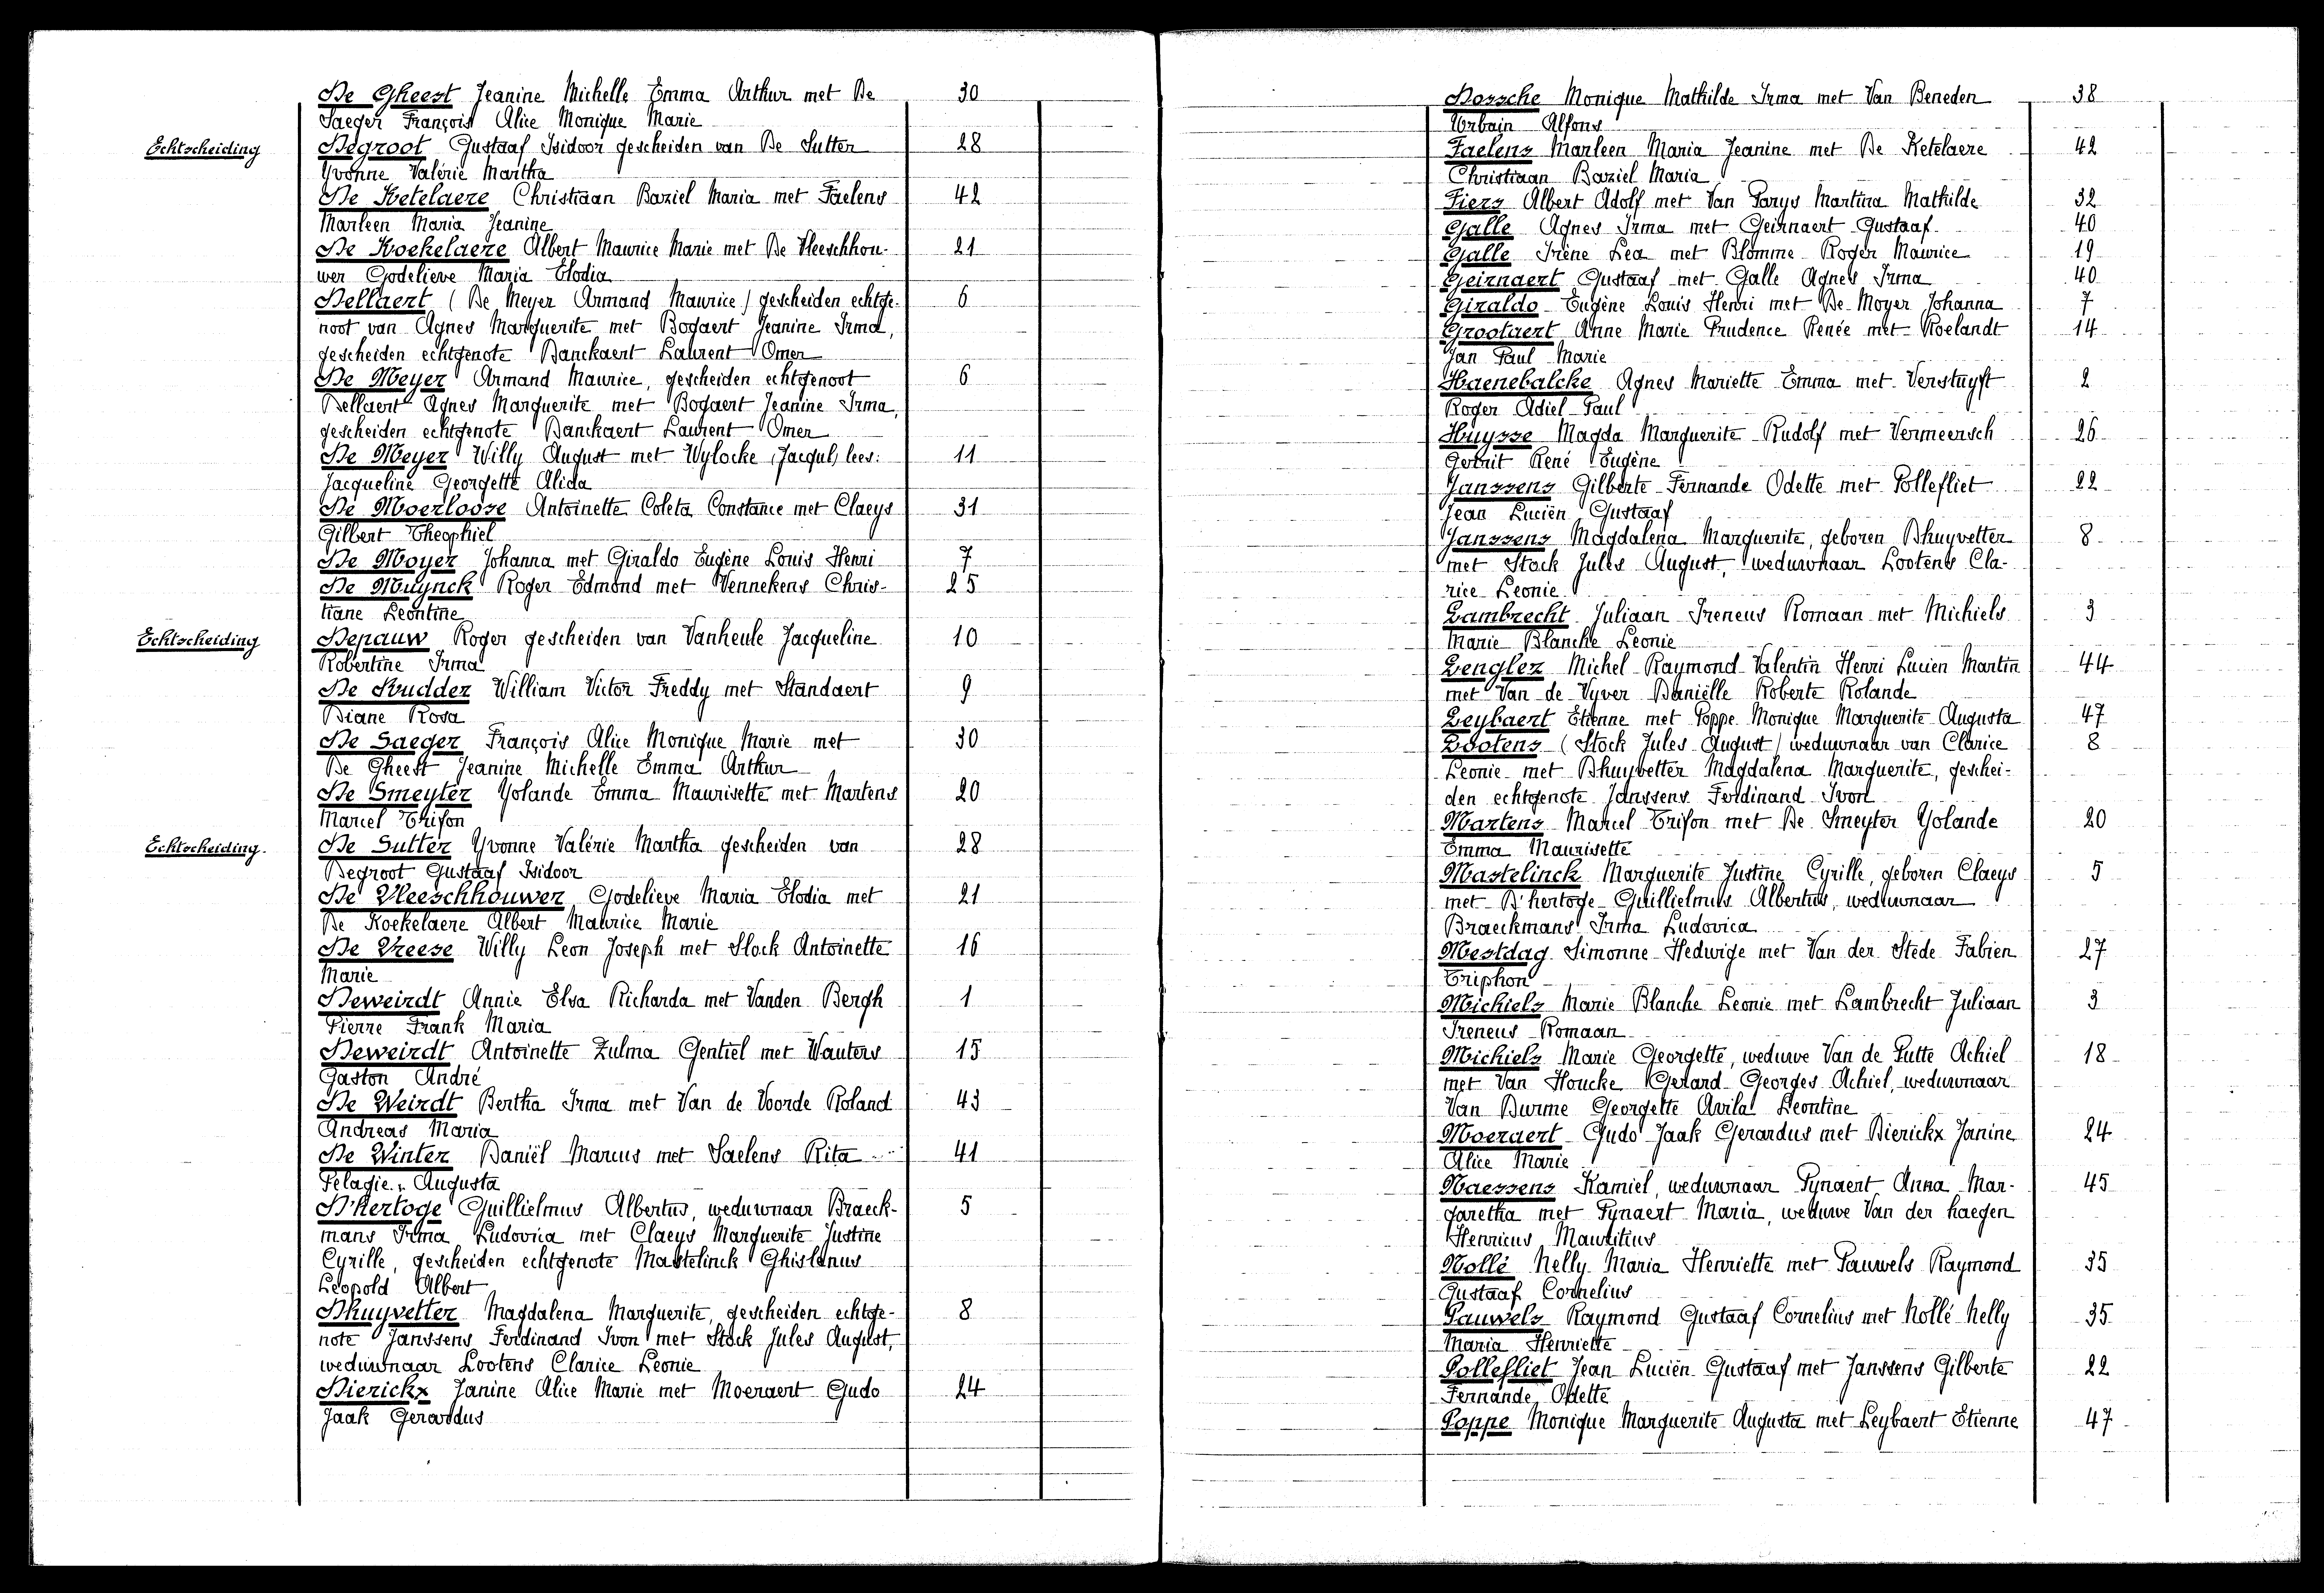 De Gheest Jeanine Michelle Emma Arthur met De 30
Saeger François Alice Monique Marie
Echtscheiding Degroot Gustaaf Isidoor gescheiden van De Sutter 28
Yvonne Valérie Martha
De Ketelaere Christiaan Baziel Maria met Faelens 42
Marleen Maria Jeanine
De Koekelaere Albert Maurice Marie met De Vleeschhou- 21
wer Godelieve Maria Elodia
Dellaert (De Meyer Armand Maurice) gescheiden echtge- 6
noot van Agnes Marguerite met Bogaert Jeanine Irma,
gescheiden echtgenote Banckaert Laurent Omer
De Meyer Armand Maurice, gescheiden echtgenoot 6
Dellaert Agnes Marguerite met Bogaert Jeanine Irma,
gescheiden echtgenote Banckaert Laurent Omer
De Meyer Willy August met Wylocke (Jacqul) lees: 11
Jacqueline Georgette Alida
De Moerloose Antoinette Coleta Constance met Claeys 31
Gilbert Theophiel
De Moyer Johanna met Giraldo Eugène Louis Henri 7
De Muynck Roger Edmond met Vennekens Chris- 25
tiane Leontine
Echtscheiding Depauw Roger gescheiden van Vanheule Jacqueline 10
Robertine Irma
De Rudder William Victor Freddy met Standaert 9
Diane Rosa
De Saeger François Alice Monique Marie met 30
De Gheest Jeanine Michelle Emma Arthur
De Smeyter Yolande Emma Maurisette met Martens 20
Marcel Trifon
Echtscheiding. De Sutter Yvonne Valérie Martha gescheiden van 28
Degroot Gustaaf Isidoor
De Vleeschhouwer Godelieve Maria Elodia met 21
De Koekelaere Albert Maurice Marie
De Vreese Willy Leon Joseph met Stock Antoinette 16
Marie
Deweirdt Annie Elsa Richarda met Vanden Bergh 1
Pierre Frank Maria
Deweirdt Antoinette Zulma Gentiel met Wauters 15
Gaston André
De Weirdt Bertha Irma met Van de Voorde Roland 43
Andreas Maria
De Winter Daniël Marcus met Saelens Rita 41
Pelagie Augusta
D'hertoge Guillielmus Albertus, weduwnaar Braeck- 5
mans Irma Ludovica met Claeys Marguerite Justine
Cyrille, gescheiden echtgenote Mastelinck Ghislenus
Leopold Albert
Dhuyvetter Magdalena Marguerite, gescheiden echtge- 8
note Janssens Ferdinand Ivon met Stock Jules August,
weduwnaar Lootens Clarice Leonie
Dierickx Janine Alice Marie met Moeraert Gudo 24
Jaak Gerardus
Dossche Monique Mathilde Irma met Van Beneden 38
Urbain Alfons
Faelens Marleen Maria Jeanine met De Ketelaere 42
Christiaan Baziel Maria
Fiers Albert Adolf met Van Parys Martina Mathilde 32
Galle Agnes Irma met Geirnaert Gustaaf 40
Galle Irène Lea met Blomme Roger Maurice 19
Geirnaert Gustaaf met Galle Agnes Irma 40
Giraldo Eugène Louis Henri met De Moyer Johanna 7
Grootaert Anne Marie Prudence Renée met Roelandt 14
Jan Paul Marie
Haenebalcke Agnes Mariette Emma met Verstuyft 2
Roger Adiel Paul
Huysse Magda Marguerite Rudolf met Vermeersch 26
Gerrit René Eugène
Janssens Gilberte Fernande Odette met Pollefliet 22
Jean Lucien Gustaaf
Janssens Magdalena Marguerite, geboren Dhuyvetter 8
met Stock Jules August, weduwnaar Lootens Cla-
rice Leonie
Lambrecht Juliaan Ireneus Romaan met Michiels 3
Marie Blanche Leonie
Lenglez Michel Raymond Valentin Henri Lucien Martin 44
met Van de Vyver Daniëlle Roberte Rolande
Leybaert Etienne met Poppe Monique Marguerite Augusta 47
Lootens (Stock Jules August) weduwnaar van Clarice 8
Leonie met Dhuyvetter Magdalena Marguerite, geschei-
den echtgenote Janssens Ferdinand Ivon
Martens Marcel Trifon met De Smeyter Yolande 20
Emma Maurisette
Mastelinck Marguerite Justine Cyrille, geboren Claeys 5
met D'hertoge Guillielmus Albertus, weduwnaar
Braeckmans Irma Ludovica
Mestdag Simonne Hedwige met Van der Stede Fabien 27
Triphon
Michiels Marie Blanche Leonie met Lambrecht Juliaan 3
Ireneus Romaan
Michiels Marie Georgette, weduwe Van de Putte Achiel 18
met Van Houcke Gerard Georges Achiel, weduwnaar
Van Durme Georgette Avila Leontine
Moeraert Gudo Jaak Gerardus met Dierickx Janine 24
Alice Marie
Naessens Kamiel, weduwnaar Pynaert Anna Mar- 45
garetha met Pynaert Maria, weduwe Van der haegen
Henricus Mauritius
Nollé Nelly Maria Henriette met Pauwels Raymond 35
Gustaaf Cornelius
Pauwels Raymond Gustaaf Cornelius met Nollé Nelly 35
Maria Henriette
Pollefliet Jean Lucien Gustaaf met Janssens Gilberte 22
Fernande Odette
Poppe Monique Marguerite Augusta met Leybaert Etienne 47